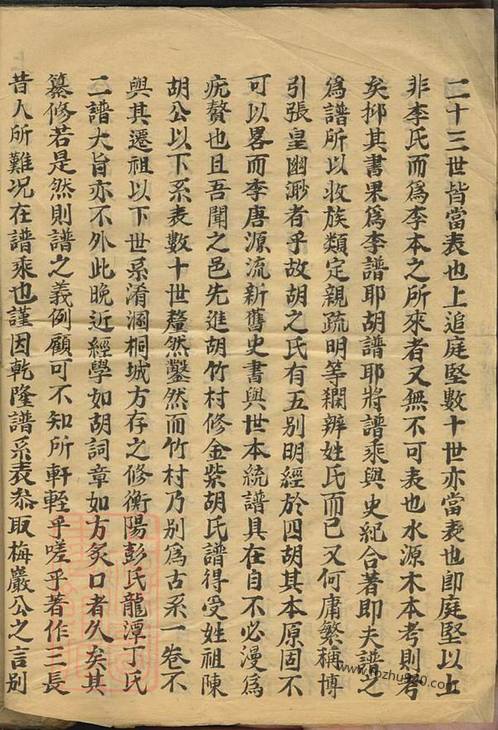 二十三世皆當表也上追庭堅數十世亦當表也即庭堅以上
非李氏而爲李本之所來者又無不可表也水源木本考則考
矣抑其書果爲李譜耶胡譜耶將譜乘與史紀合著即夫譜之
爲譜所以收族類定親疏明等
辨姓氏而已又何庸繁稱博
引張皇幽渺者乎故胡之氏有五别明經於四胡其本原固不
可以畧而李唐源流新舊史書與世本統譜具在自不必漫爲
疣贅也且吾聞之邑先進胡竹村修金紫胡氏譜得受姓祖陳
胡公以下系表數十世釐然鑿然而竹村乃别爲古系一卷不
與其遷祖以下世系淆溷桐城方存之修衡陽彭氏龍潭丁氏
二譜大旨亦不外此晚近經學如胡詞章如方炙口者久矣其
纂修若是然則譜之義例顧可不知所軒輊乎嗟乎著作三長
昔人所難况在譜乘也謹因乾隆譜系表叅取梅巖公之言别